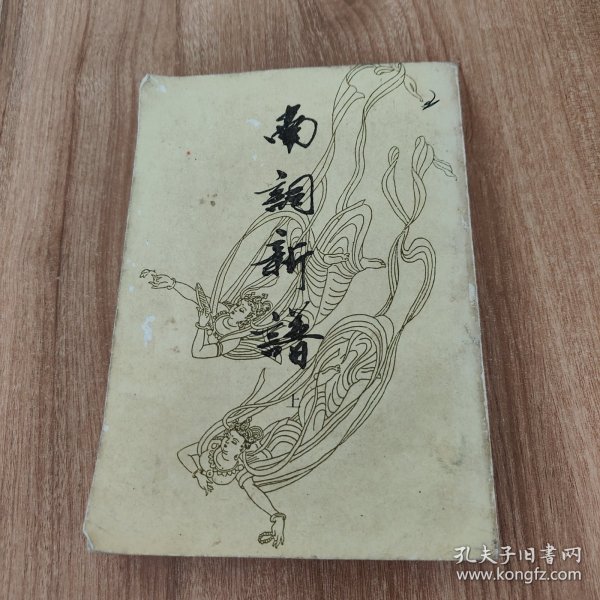 南詞新譜
上
2
孔夫子旧書网
www.kongfz.com